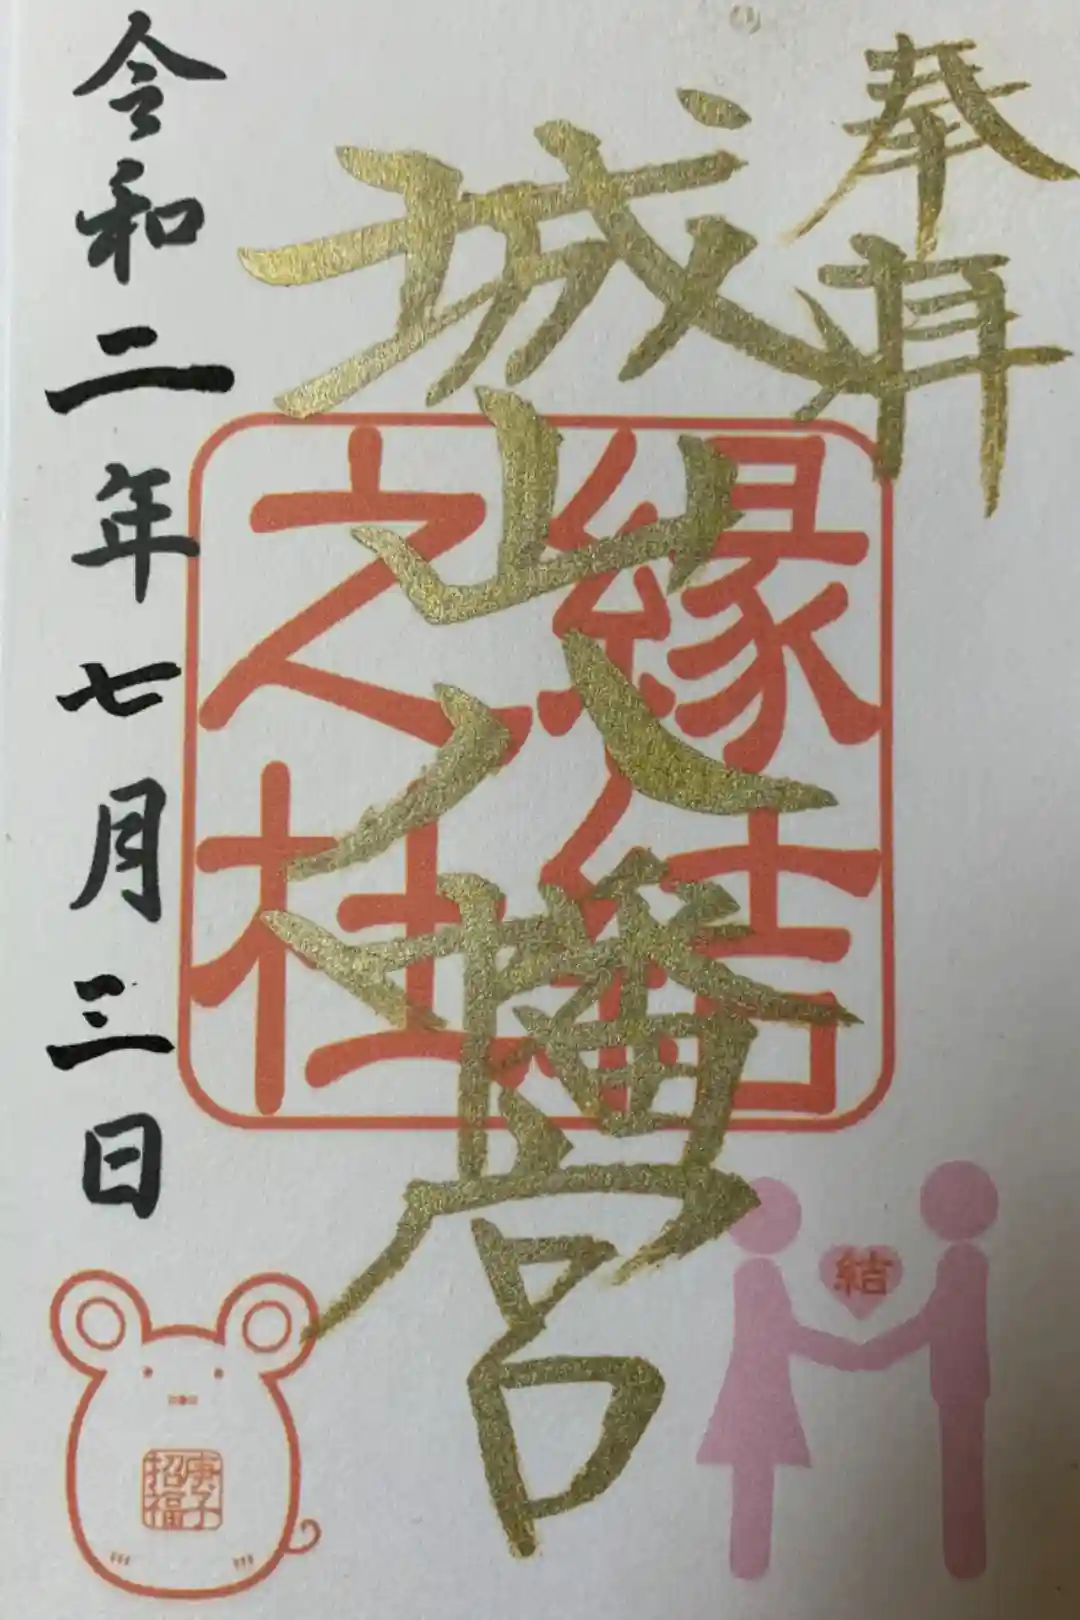 奉拝
城山八幡宮
縁結
之社
令和二年七月三日
結
庚子
招福